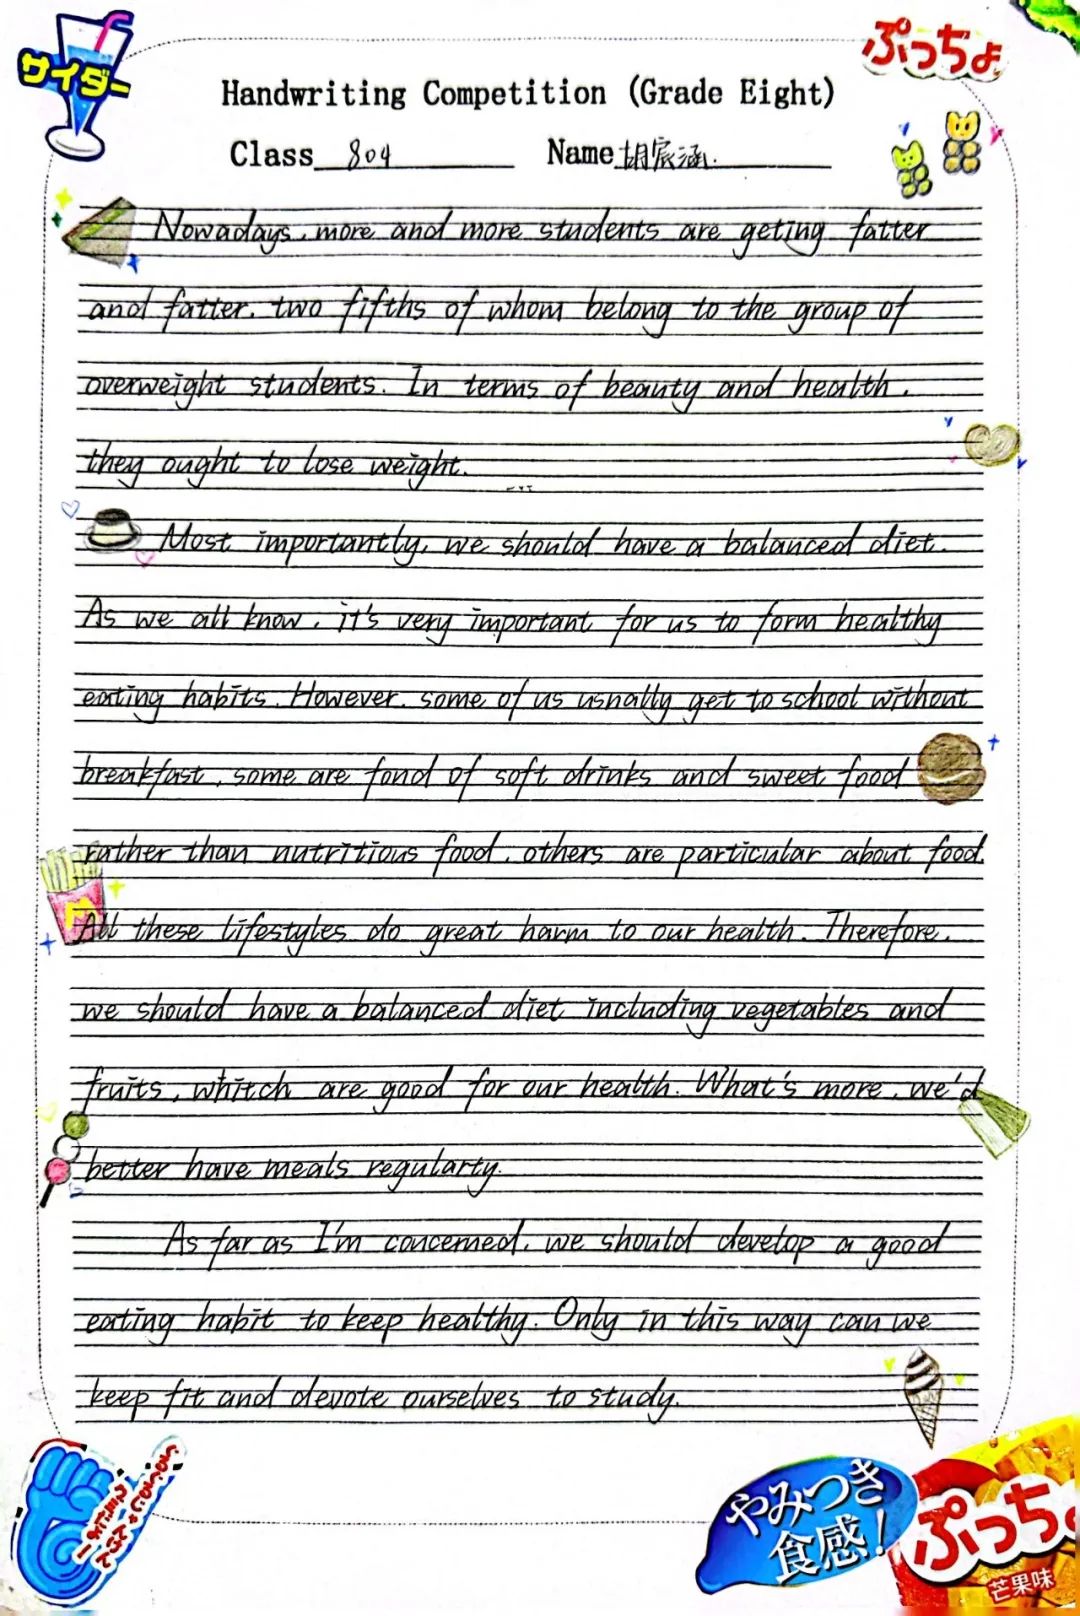 サイダー
ぷっちょ
Handwriting Competition (Grade Eight)
Class 804 Name 胡宸涵.
Nowadays, more and more students are geting fatter
and fatter. two fifths of whom belong to the group of
overweight students. In terms of beauty and health,
they ought to lose weight.
Most importantly, we should have a balanced diet.
As we all know, it's very important for us to form healthy
eating habits. However, some of us usnally get to school without
breakfast, some are fond of soft drinks and sweet food
rather than nutritious food, others are particular about food.
All these lifestyles do great harm to our health. Therefore,
we should have a balanced diet including vegetables and
fruits, whitch are good for our health. What's more, we'd
better have meals regularty.
As far as I'm concerned, we should develop a good
eating habit to keep healthy. Only in this way can we
keep fit and devote ourselves to study.
やみつき
食感!
ぷっちょ
芒果味